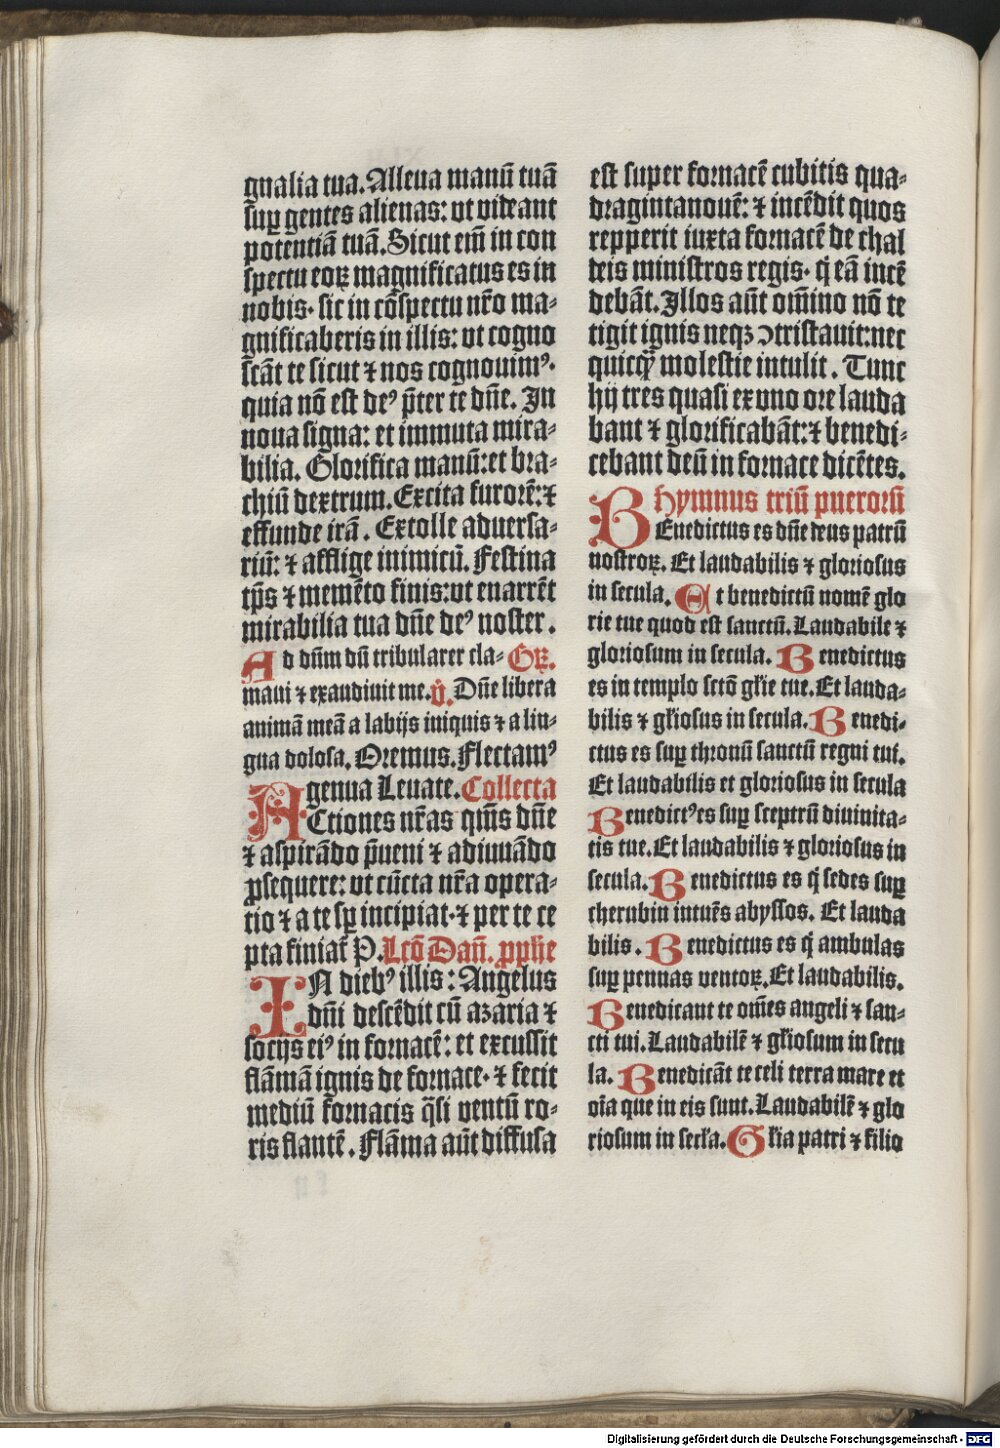 gnalia tua. Alleua manū tuā
suꝑ gentes alienas: vt videant
potentiā tuā. Sicut eiḿ in con
spectu eoꝝ magnificatus es in
nobis· sic in cōspectu nr̄o ma-
gnificaberis in illis: vt cogno
scāt te sicut ⁊ nos cognouimꝰ·
quia nō est deꝰ p̄ter te dn̄e. In
noua signa: et immuta mira-
bilia. Glorifica manū: et bra-
chiū dextrum. Excita furorē: ⁊
effunde irā. Extolle aduersa-
riū: ⁊ afflige inimicū. Festina
tp̄s ⁊ memēto finis: vt enarrēt
mirabilia tua dn̄e deꝰ noster.
Ad dn̄m dū tribularer cla- Gꝝ.
maui ⁊ exaudiuit me. v̄. Dn̄e libera
animā meā a labijs iniquis ⁊ a lin-
gua dolosa. Oremus. Flectamꝰ
genua Leuate. Collecta
ACtiones nr̄as qm̄s dn̄e
⁊ aspirādo p̄ueni ⁊ adiuuādo
ꝓsequere: vt cūcta nr̄a opera-
tio ⁊ a te sꝑ incipiat· ⁊ per te ce
pta finiat̄ P. Lcō Dan̄. ꝓphe
IN diebꝰ illis: Angelus
dn̄i descēdit cū azaria ⁊
socijs eiꝰ in fornacē: et excussit
flāmā ignis de fornace· ⁊ fecit
mediū fornacis q̄si ventū ro-
ris flantē. Flāma aūt diffusa
est super fornacē cubitis qua-
dragintanouē: ⁊ incēdit quos
repperit iuxta fornacē de chal
deis ministros regis· q̇ eā incē
debāt. Illos aūt om̄ino nō te
tigit ignis neqꝫ ꝯtristauit: nec
quicq̄ molestie intulit. Tunc
hij tres quasi ex vno ore lauda
bant ⁊ glorificabāt: ⁊ benedi-
cebant deū in fornace dicētes.
hymnus triū puerorū
BEnedictus es dn̄e deus patrū
nostroꝝ. Et laudabilis ⁊ gloriosus
in secula. Et benedictū nomē glo
rie tue quod est sanctū. Laudabile ⁊
gloriosum in secula. Benedictus
es in templo sctō gl̄ie tue. Et lauda-
bilis ⁊ gl̄iosus in secula. Benedi-
ctus es suꝑ thronū sanctū regni tui.
Et laudabilis et gloriosus in secula
Benedictꝰ es suꝑ sceptrū diuinita-
tis tue. Et laudabilis ⁊ gloriosus in
secula. Benedictus es q̇ sedes suꝑ
cherubin intuēs abyssos. Et lauda
bilis. Benedictus es q̇ ambulas
suꝑ pennas ventoꝝ. Et laudabilis.
Benedicant te om̄es angeli ⁊ san-
cti tui. Laudabilē ⁊ gl̄iosum in secu
la. Benedicāt te celi terra mare et
oīa que in eis sunt. Laudabilē ⁊ glo
riosum in secl̄a. Gl̄ia patri ⁊ filio
Digitalisierung gefördert durch die Deutsche Forschungsgemeinschaft - DFG